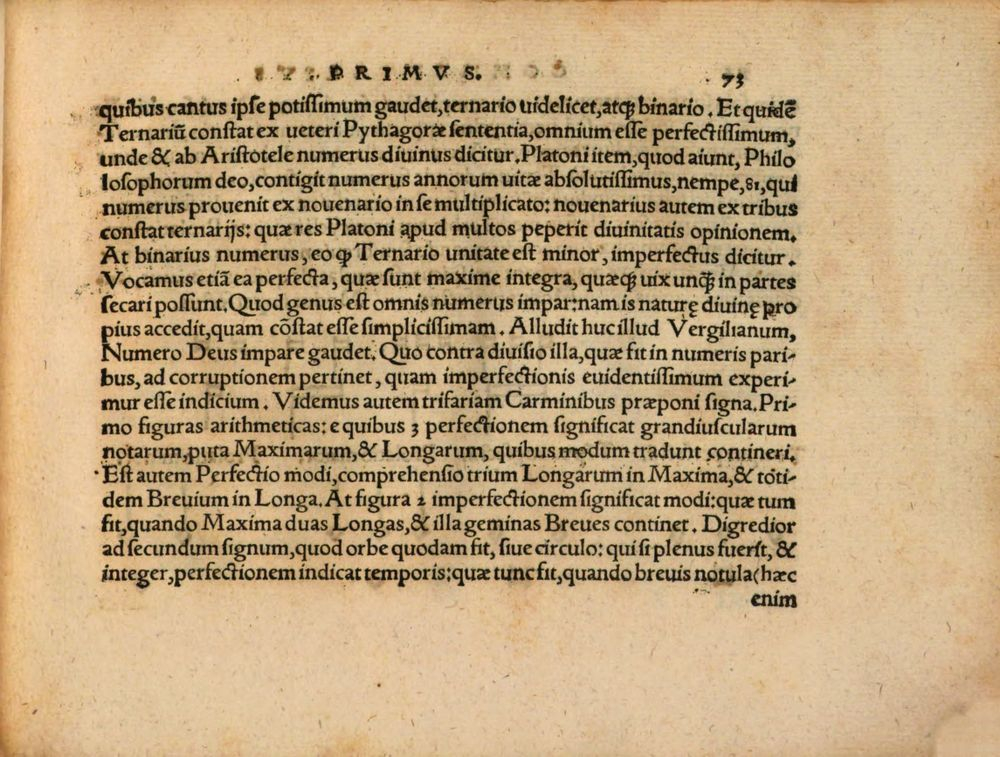 PRIMVS. 73
quibus cantus ipse potissimum gaudet, ternario uidelicet, atq; binario. Et quidẽ
Ternariũ constat ex ueteri Pythagoræ sententia, omnium esse perfectissimum,
unde & ab Aristotele numerus diuinus dicitur. Platoni item, quod aiunt, Philo
losophorum deo, contigit numerus annorum uitæ absolutissimus, nempe, 81, qui
numerus prouenit ex nouenario in se multiplicato: nouenarius autem ex tribus
constat ternarijs: quæ res Platoni apud multos peperit diuinitatis opinionem.
At binarius numerus, eo ꝙ Ternario unitate est minor, imperfectus dicitur.
Vocamus etiã ea perfecta, quæ sunt maxime integra, quæq; uix unq̃ in partes
secari possunt. Quod genus est omnis numerus impar: nam is naturę diuinę pro
pius accedit, quam cõstat esse simplicissimam. Alludit huc illud Vergilianum,
Numero Deus impare gaudet. Quo contra diuisio illa, quæ fit in numeris pari-
bus, ad corruptionem pertinet, quam imperfectionis euidentissimum experi-
mur esse indicium. Videmus autem trifariam Carminibus præponi signa. Pri-
mo figuras arithmeticas: e quibus 3 perfectionem significat grandiuscularum
notarum, puta Maximarum, & Longarum, quibus modum tradunt contineri.
Est autem Perfectio modi, comprehensio trium Longarum in Maxima, & toti-
dem Breuium in Longa. At figura 2 imperfectionem significat modi: quæ tum
fit, quando Maxima duas Longas, & illa geminas Breues continet. Digredior
ad secundum signum, quod orbe quodam fit, siue circulo: qui si plenus fuerit, &
integer, perfectionem indicat temporis: quæ tunc fit, quando breuis notula (hæc
enim